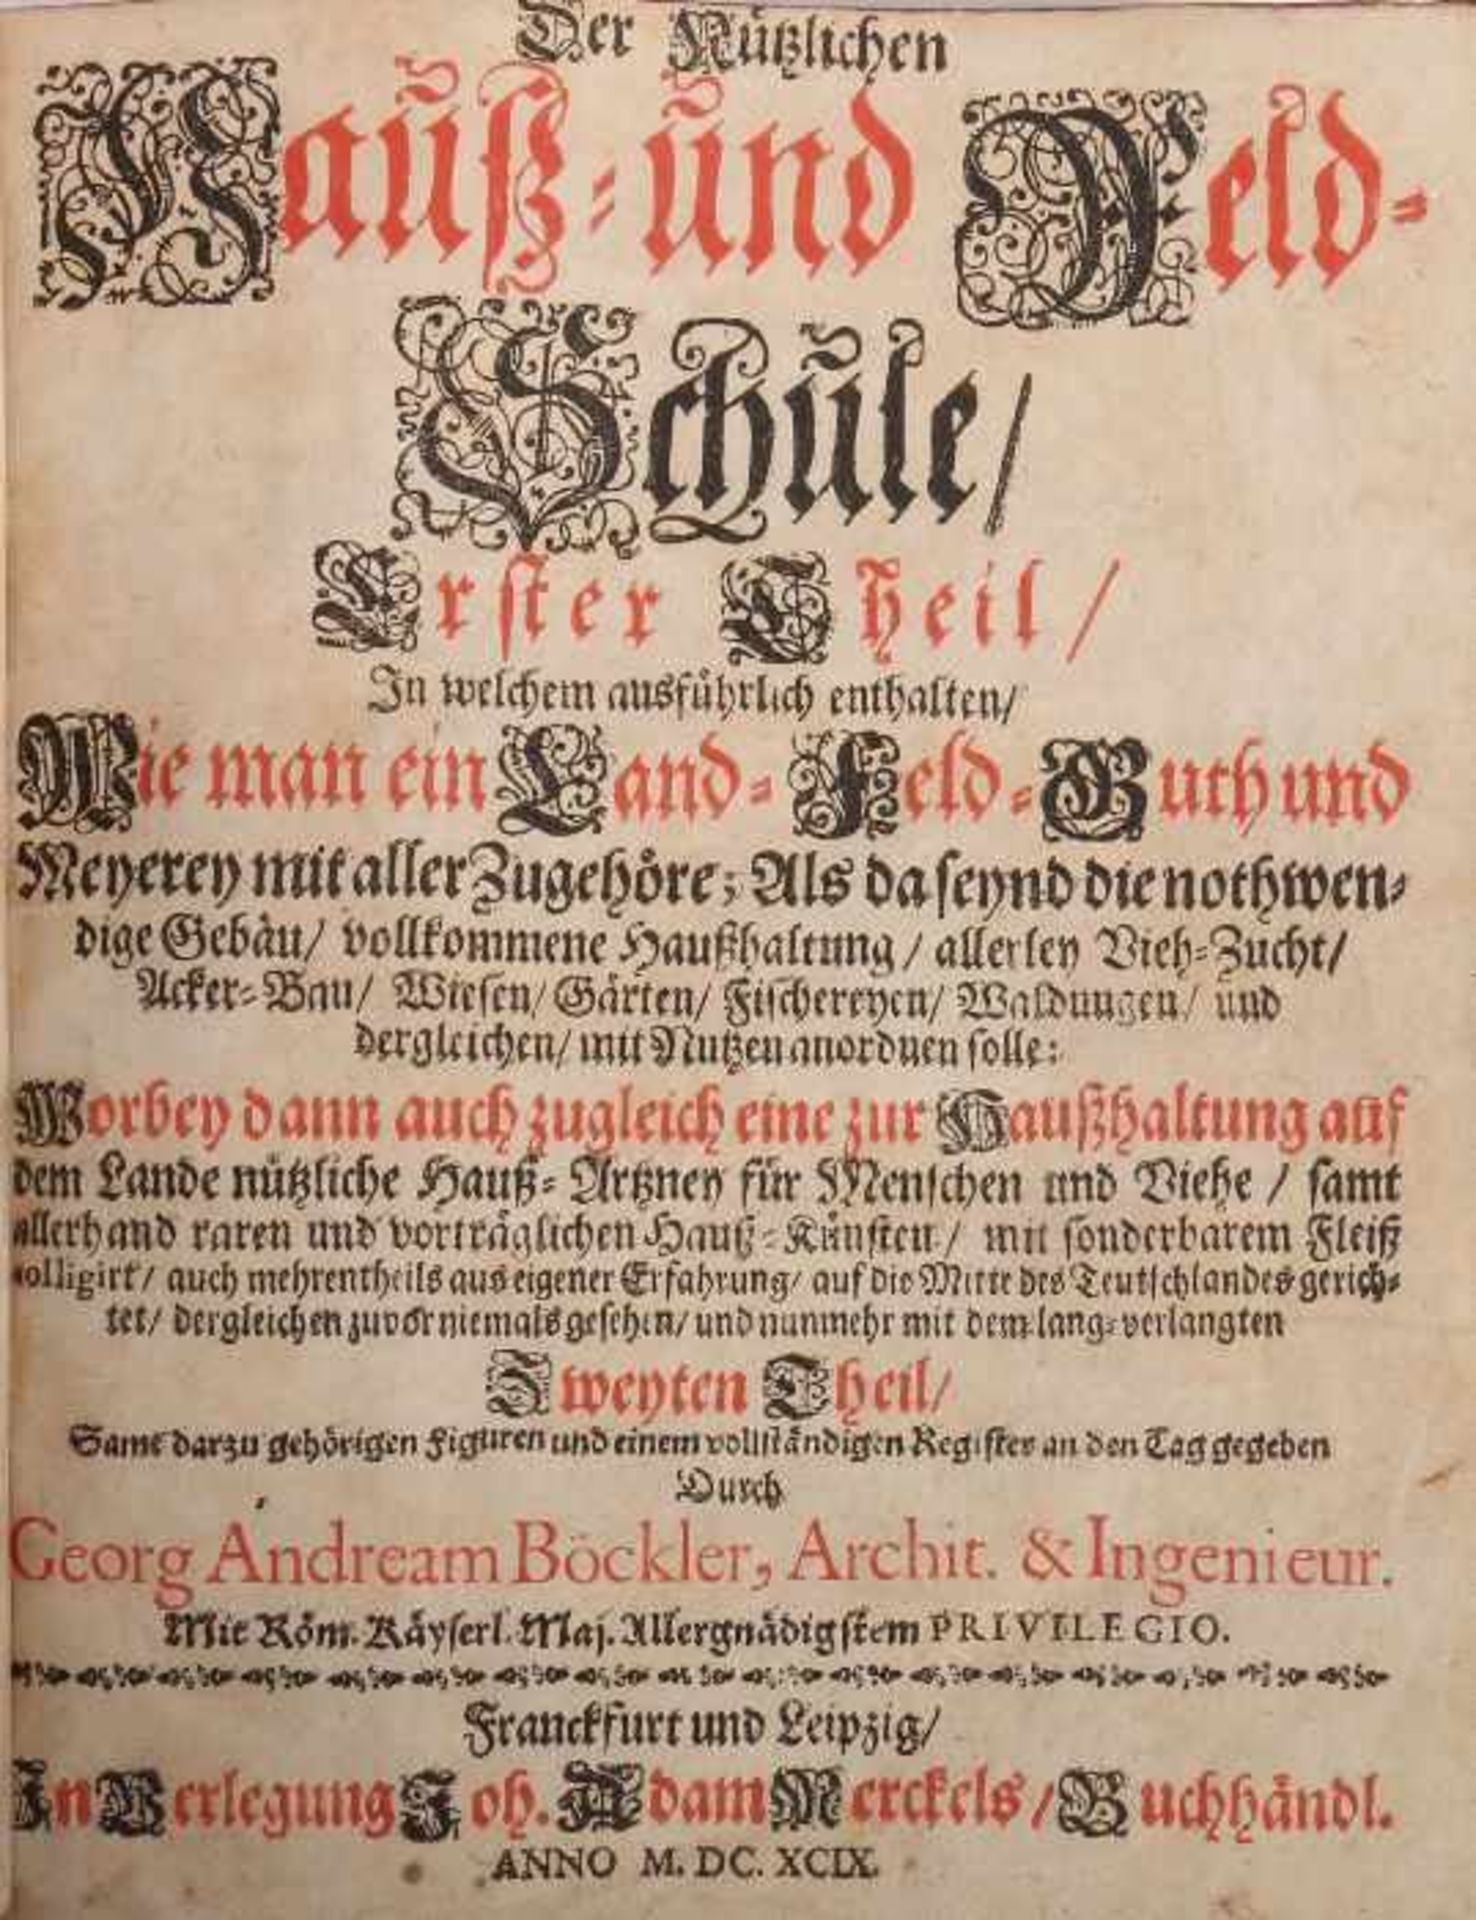 Der Nützlichen
Hauß- und Feld-
Schule/
Erster Theil/
In welchem ausführlich enthalten/
Wie man ein Land- Feld- Guth und
Meyerey mit aller Zugehöre; Als da seynd die nothwen-
dige Gebäu/ vollkommene Haußhaltung/ allerley Vieh-Zucht/
Acker-Bau/ Wiesen/ Gärten/ Fischereyen/ Waldungen/ und
dergleichen/ mit Nutzen anordnen solle:
Worbey dann auch zugleich eine zur Haußhaltung auf
dem Lande nützliche Hauß-Artzney für Menschen und Viehe / samt
allerhand raren und vorträglichen Hauß-Künsten/ mit sonderbarem Fleiß
colligirt/ auch mehrentheils aus eigener Erfahrung/ auf die Mitte des Teutschlandes gerich-
tet/ dergleichen zuvor niemals gesehen/ und nunmehr mit dem lang-verlangten
Zweyten Theil/
Samt darzu gehörigen Figuren und einem vollständigen Register an den Tag gegeben
Durch
Georg Andream Böckler, Archit. & Ingenieur.
Mit Röm. Käyserl. Maj. Allergnädigstem PRIVILEGIO.
Franckfurt und Leipzig/
In Verlegung Joh. Adam Merckels/ Buchhändl.
ANNO M. DC. XCIX.